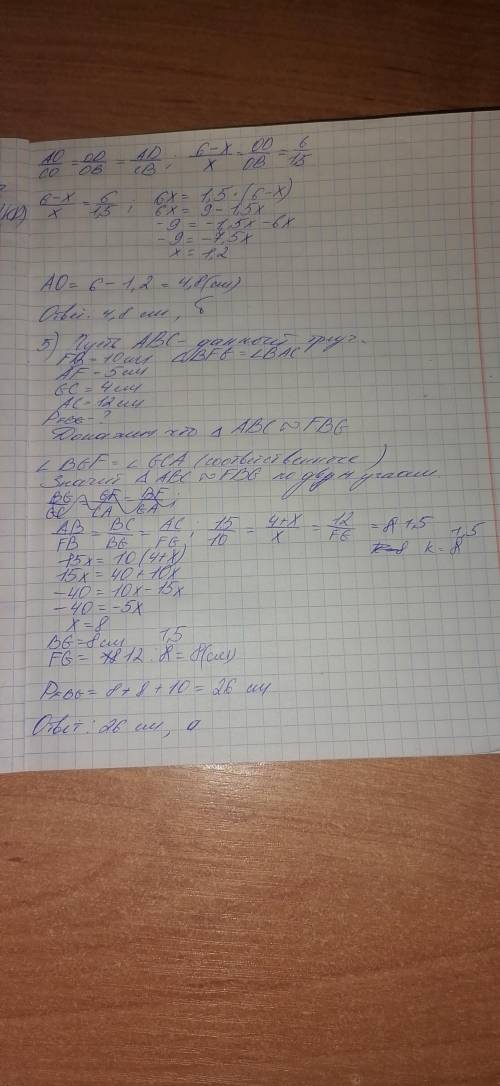 AO/CO = OD/OB = AD/CB ; 6-x/x = OD/OB = 6/15
6-x/x = 6/1,5 ; 6x = 1,5·(6-x)
6x = 9-1,5x
-9 = -1,5x-6x
-9 = -7,5x
x = 1,2
AO = 6-1,2 = 4,8(см)
Ответ: 4,8 см, б
5) Пусть ABC - данный треуг.
FB = 10 см ∠BFG = ∠BAC
AF = 5 см
GC = 4 см
AC = 12 см
P FBG - ?
Докажим что △ ABC ∾ FBG
∠ BGF = ∠ GCA (соответственные)
Значит △ ABC ∾ FBG по двум углам
BG/GC = GF/CA = BF/GA ;
AB/FB = BC/BG = AC/FG ; 15/10 = 4+x/x = 12/FG = 1,5
k = 1,5
15x = 10(4+x)
15x = 40+10x
-40 = 10x-15x
-40 = -5x
x = 8
BG = 8 см
FG = 12 : 1,5 = 8(см)
P FBG = 8+8+10 = 26 см
Ответ: 26 см, а